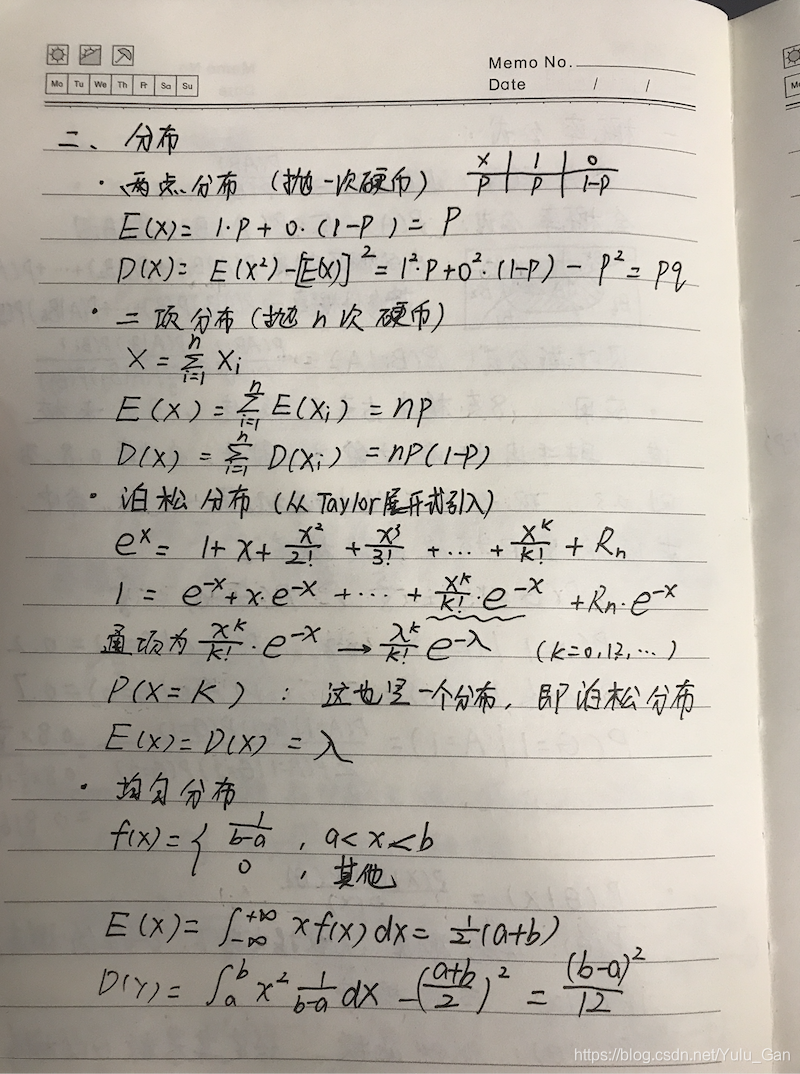 Memo No.
Mo Tu We Th Fr Sa Su
Date / /
二、分布
· 两点分布 (抛一次硬币) X | 1 | 0
P | P | 1-P
E(X) = 1·P + 0·(1-P) = P
D(X) = E(X²) - [E(X)]² = 1²·P + 0²·(1-P) - P² = Pq
· 二项分布 (抛n次硬币)
X = ∑_{i=1}^{n} Xi
E(X) = ∑_{i=1}^{n} E(Xi) = nP
D(X) = ∑_{i=1}^{n} D(Xi) = nP(1-P)
· 泊松分布 (从Taylor展开式引入)
e^x = 1 + x + x²/2! + x³/3! + … + x^k/k! + Rn
1 = e^-x + x·e^-x + … + x^k/k!·e^-x + Rn·e^-x
通项为 x^k/k!·e^-x → λ^k/k! e^-λ (k=0,12,…)
P(X=K) : 这也是一个分布, 即泊松分布
E(X) = D(X) = λ
· 均匀分布
f(x) = { 1/(b-a) , a<x<b
0 , 其他
E(X) = ∫_{-∞}^{+∞} x f(x) dx = 1/2(a+b)
D(Y) = ∫_a^b x² 1/(b-a) dx - ((a+b)/2)² = (b-a)²/12
https://blog.csdn.net/Yulu_Gan